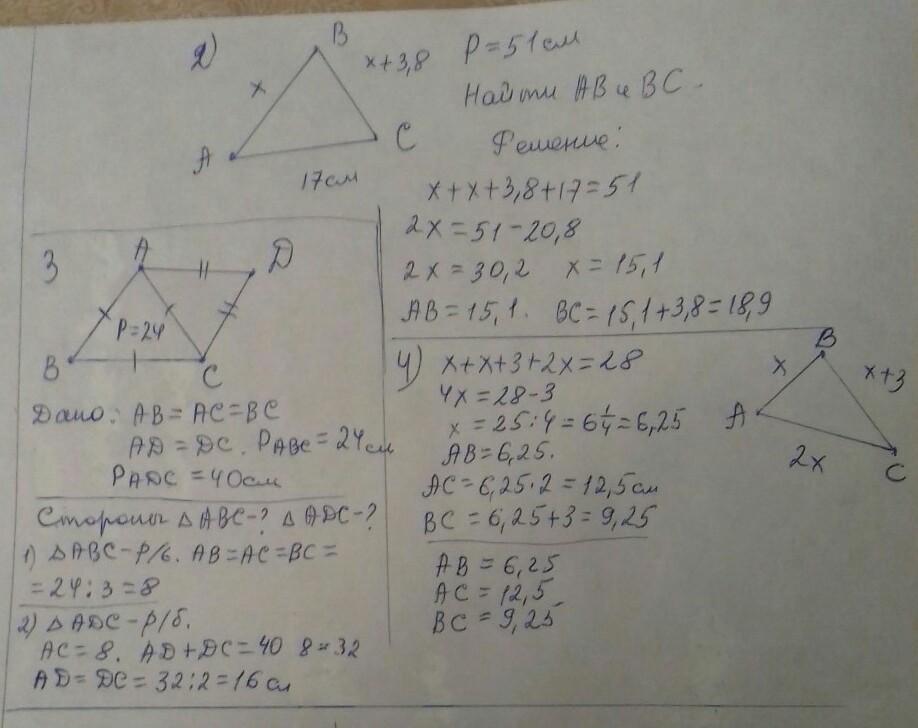 2)
B
x
x+3,8
A
C
17см
P=51см
Найти AB и BC.
Решение:
x+x+3,8+17=51
2x=51-20,8
2x=30,2 x=15,1
AB=15,1. BC=15,1+3,8=18,9
3
A
D
P=24
B
C
Дано: AB=AC=BC
AD=DC. PABC=24см
PADC=40см
Стороны △ABC-? △ADC-?
1) △ABC-р/б. AB=AC=BC=
=24:3=8
2) △ADC-р/б.
AC=8. AD+DC=40 8=32
AD=DC=32:2=16см
4) x+x+3+2x=28
4x=28-3
x=25:4=6 1/4=6,25
AB=6,25.
AC=6,25·2=12,5см
BC=6,25+3=9,25
AB=6,25
AC=12,5
BC=9,25
B
x
x+3
A
2x
C